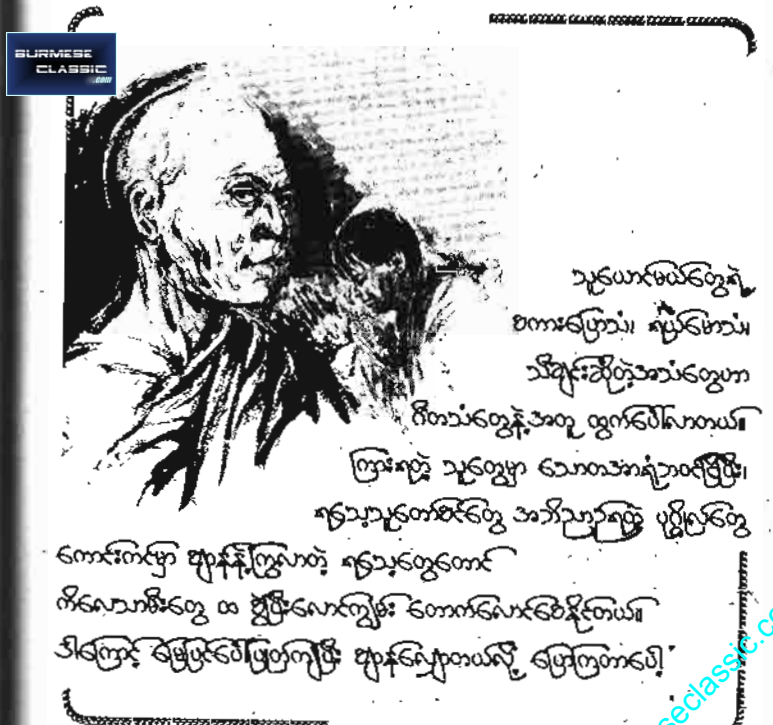 BURMESE
CLASSIC
.com
သူယောင်မယ်တွေရဲ့
စကားပြောသံ၊ ရယ်မောသံ၊
သီချင်းဆိုတဲ့အသံတွေဟာ
ဂီတသံတွေနဲ့အတူ ထွက်ပေါ်လာတယ်။
ကြားရတဲ့ သူတွေမှာ သောတအာရုံဘဝင်ခိုပြီး၊
ရသေ့သူတော်စင်တွေ အဘိညာဉ်ရထွဲ ပုဂ္ဂိုလ်တွေ
ကောင်းကင်မှာ ဈာန်နဲ့ကြွလာတဲ့ ရသေ့တွေတောင်
ကိလေသာမီးတွေ ထ ပြီးလောင်ကျွမ်း တောက်လောင်စေနိုင်တယ်။
ဒါကြောင့် မြေပြင်ပေါ်ပြုတ်ကျပြီး ဈာန်လျှောတယ်လို့ ပြောကြတာပေါ့
seclassic.co